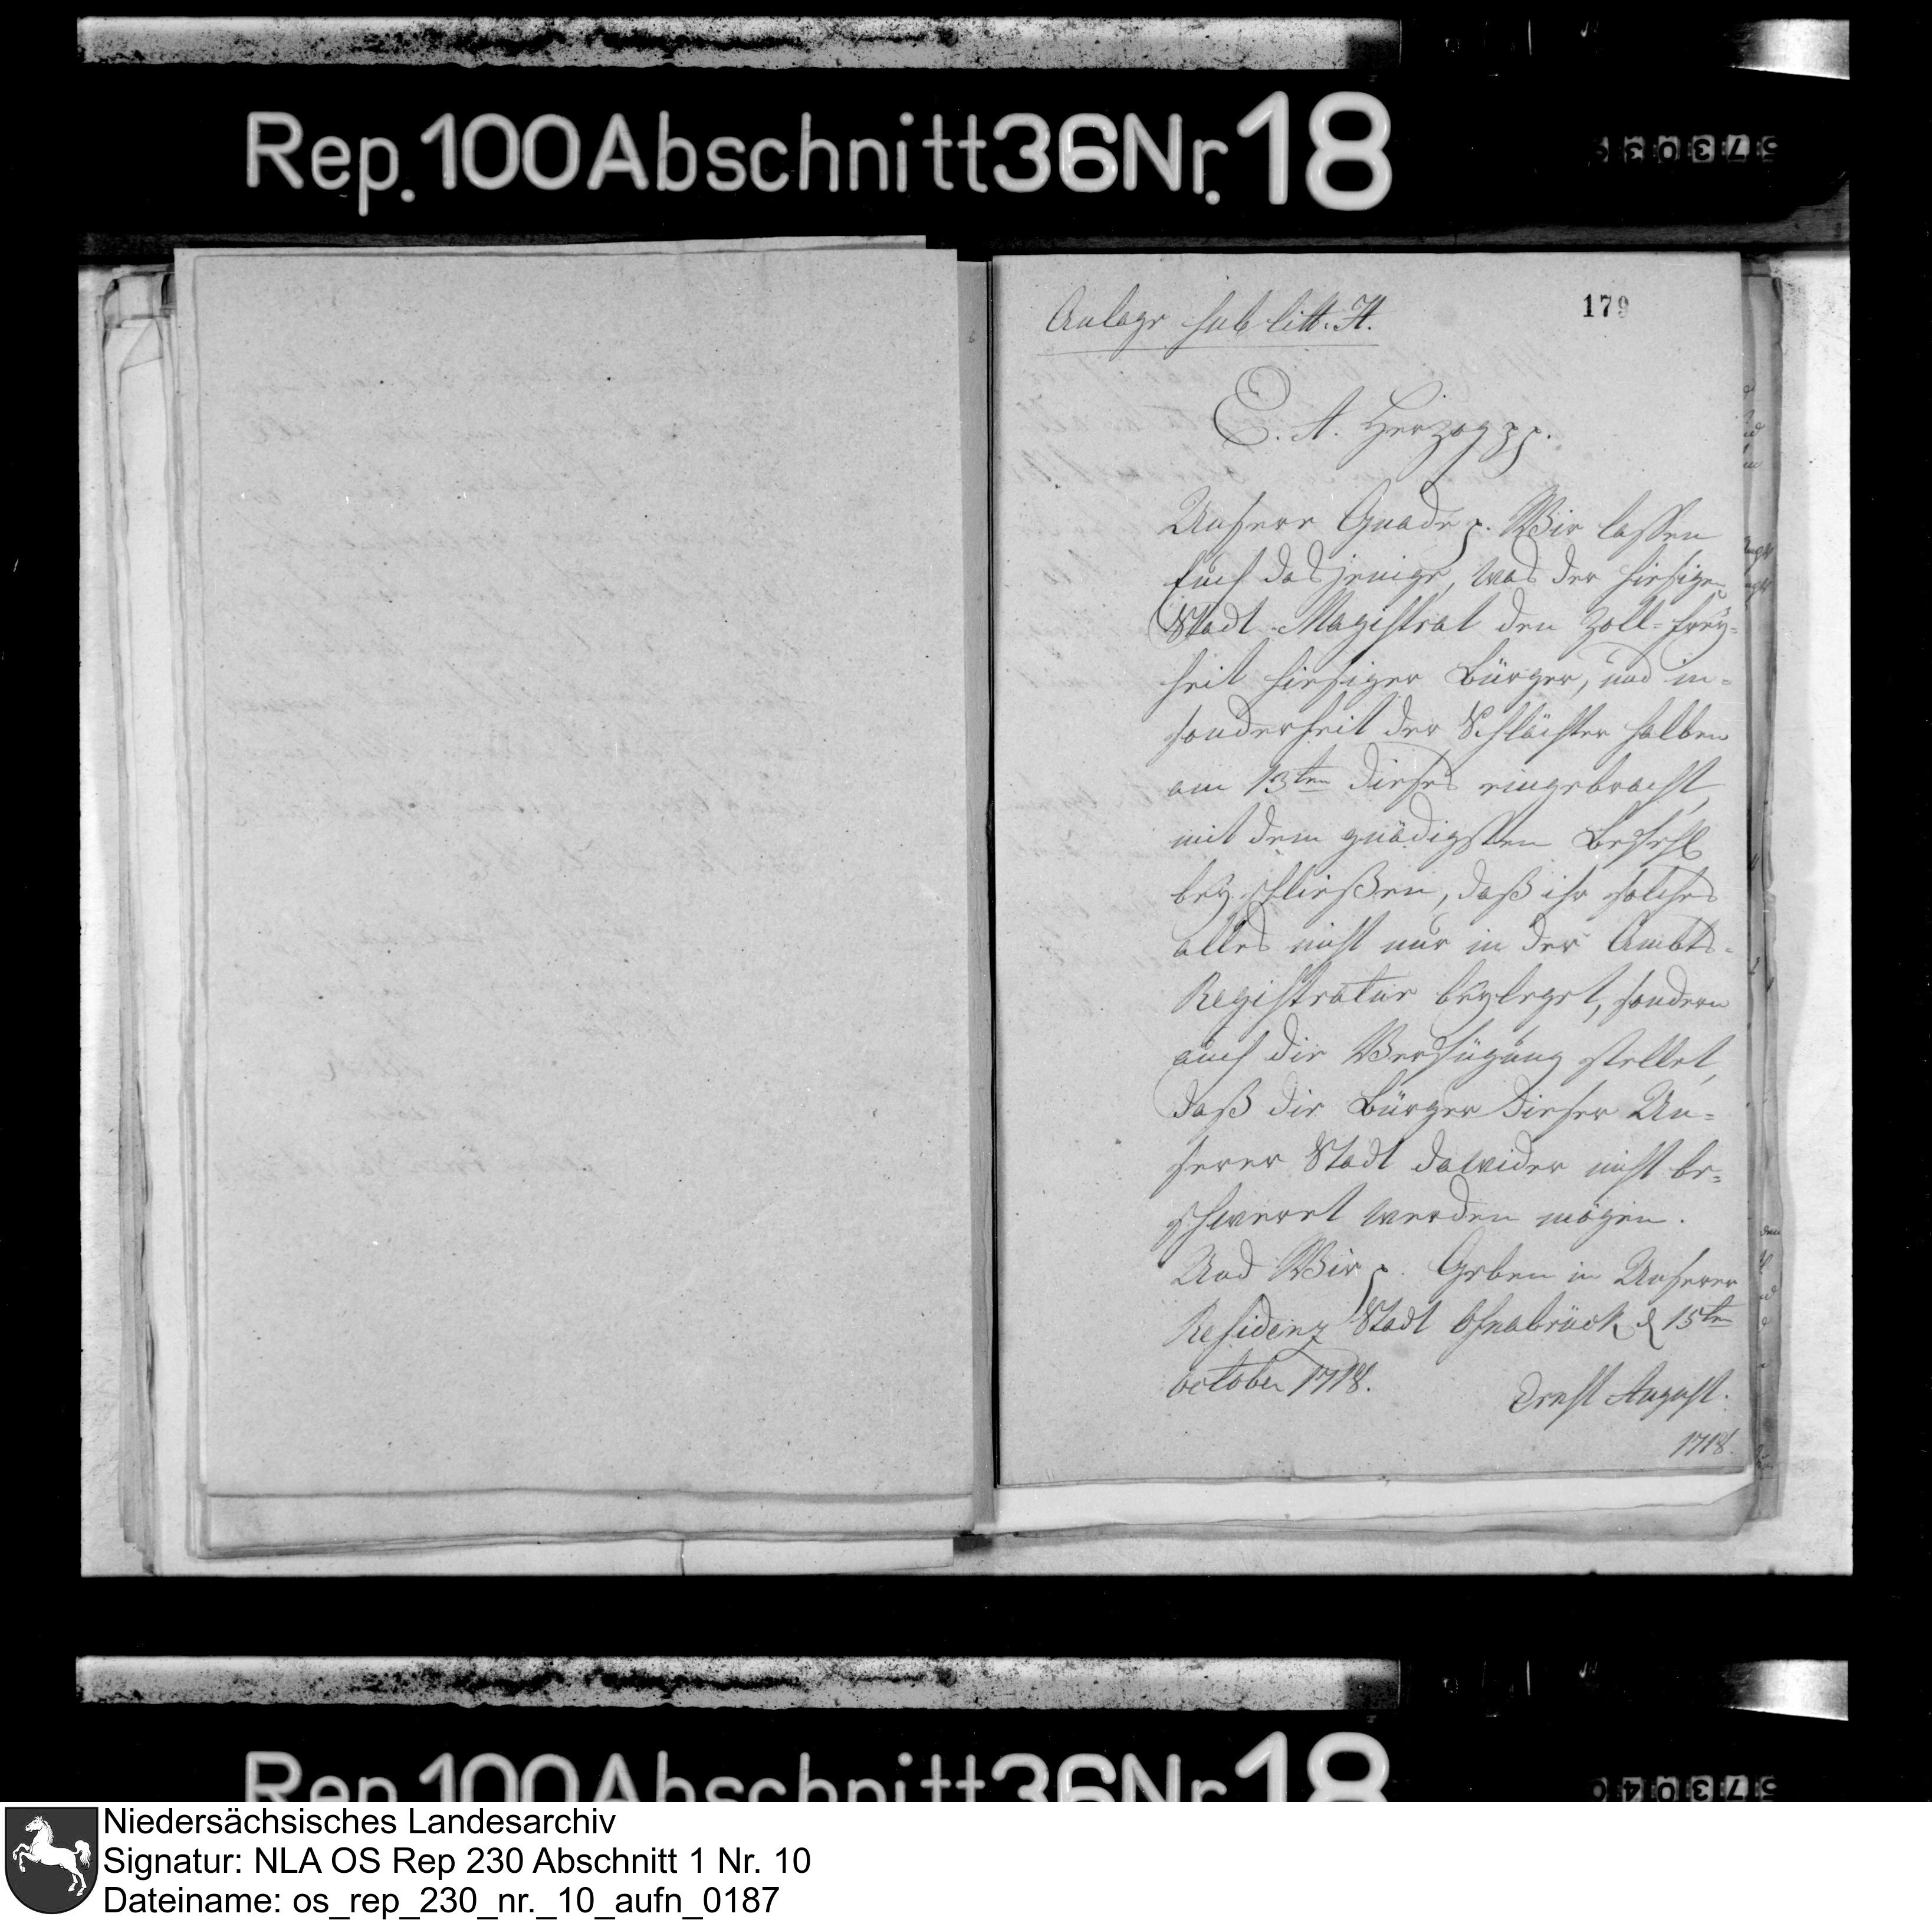 Rep. 100 Abschnitt 36 Nr. 18
179
Anlage sub litt. H.
E. A. Herzog pp.
Unsere Gnade p. Wir lassen
Euch dasjenige, was der hiesige
Stadt-Magistrat den Zoll-Frey-
heit hiesiger Bürger, und in-
sonderheit der Schlächter halben
am 13ten dieses eingebracht,
mit dem gnädigsten Befehl
beyschließen, daß ihr solches
alles nicht nur in der Ambts-
Registratur beyleget, sondern
auch die Verfügung stellet,
daß die Bürger dieser Un-
serer Stadt dawider nicht be-
schweret werden mögen.
Und Wir p. Geben in Unserer
Residenz Stadt Osnabrück d 15ten
October 1718.
Ernst August.
1718.
Rep. 100 Abschnitt 36 Nr. 18
Niedersächsisches Landesarchiv
Signatur: NLA OS Rep 230 Abschnitt 1 Nr. 10
Dateiname: os_rep_230_nr._10_aufn_0187